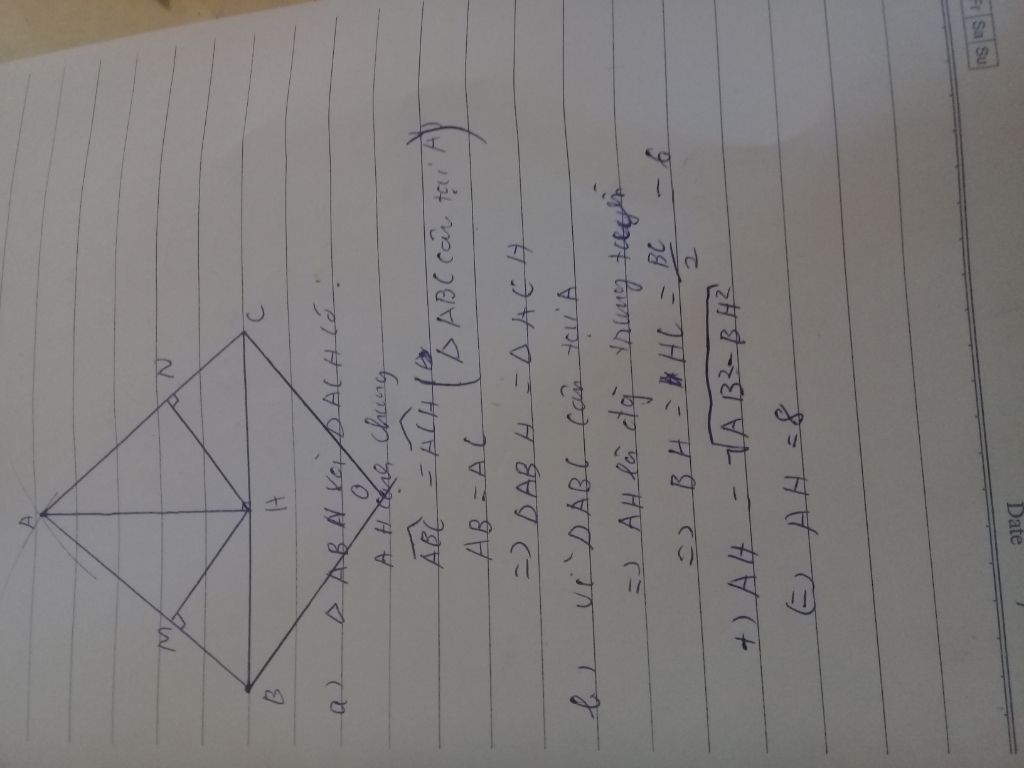 Fr Sa Su
Date
A
M
N
B
H
C
O
a) Δ ABH và ΔACH có:
AH cạnh chung
ABC = ACH (
AB = AC (Δ ABC cân tại A)
=) ΔABH = ΔACH
b) Vì ΔABC cân tại A
=) AH là đg trung tuyến
=) BH = HC = BC/2 = 6
+) AH = √AB²-BH²
(=) AH = 8